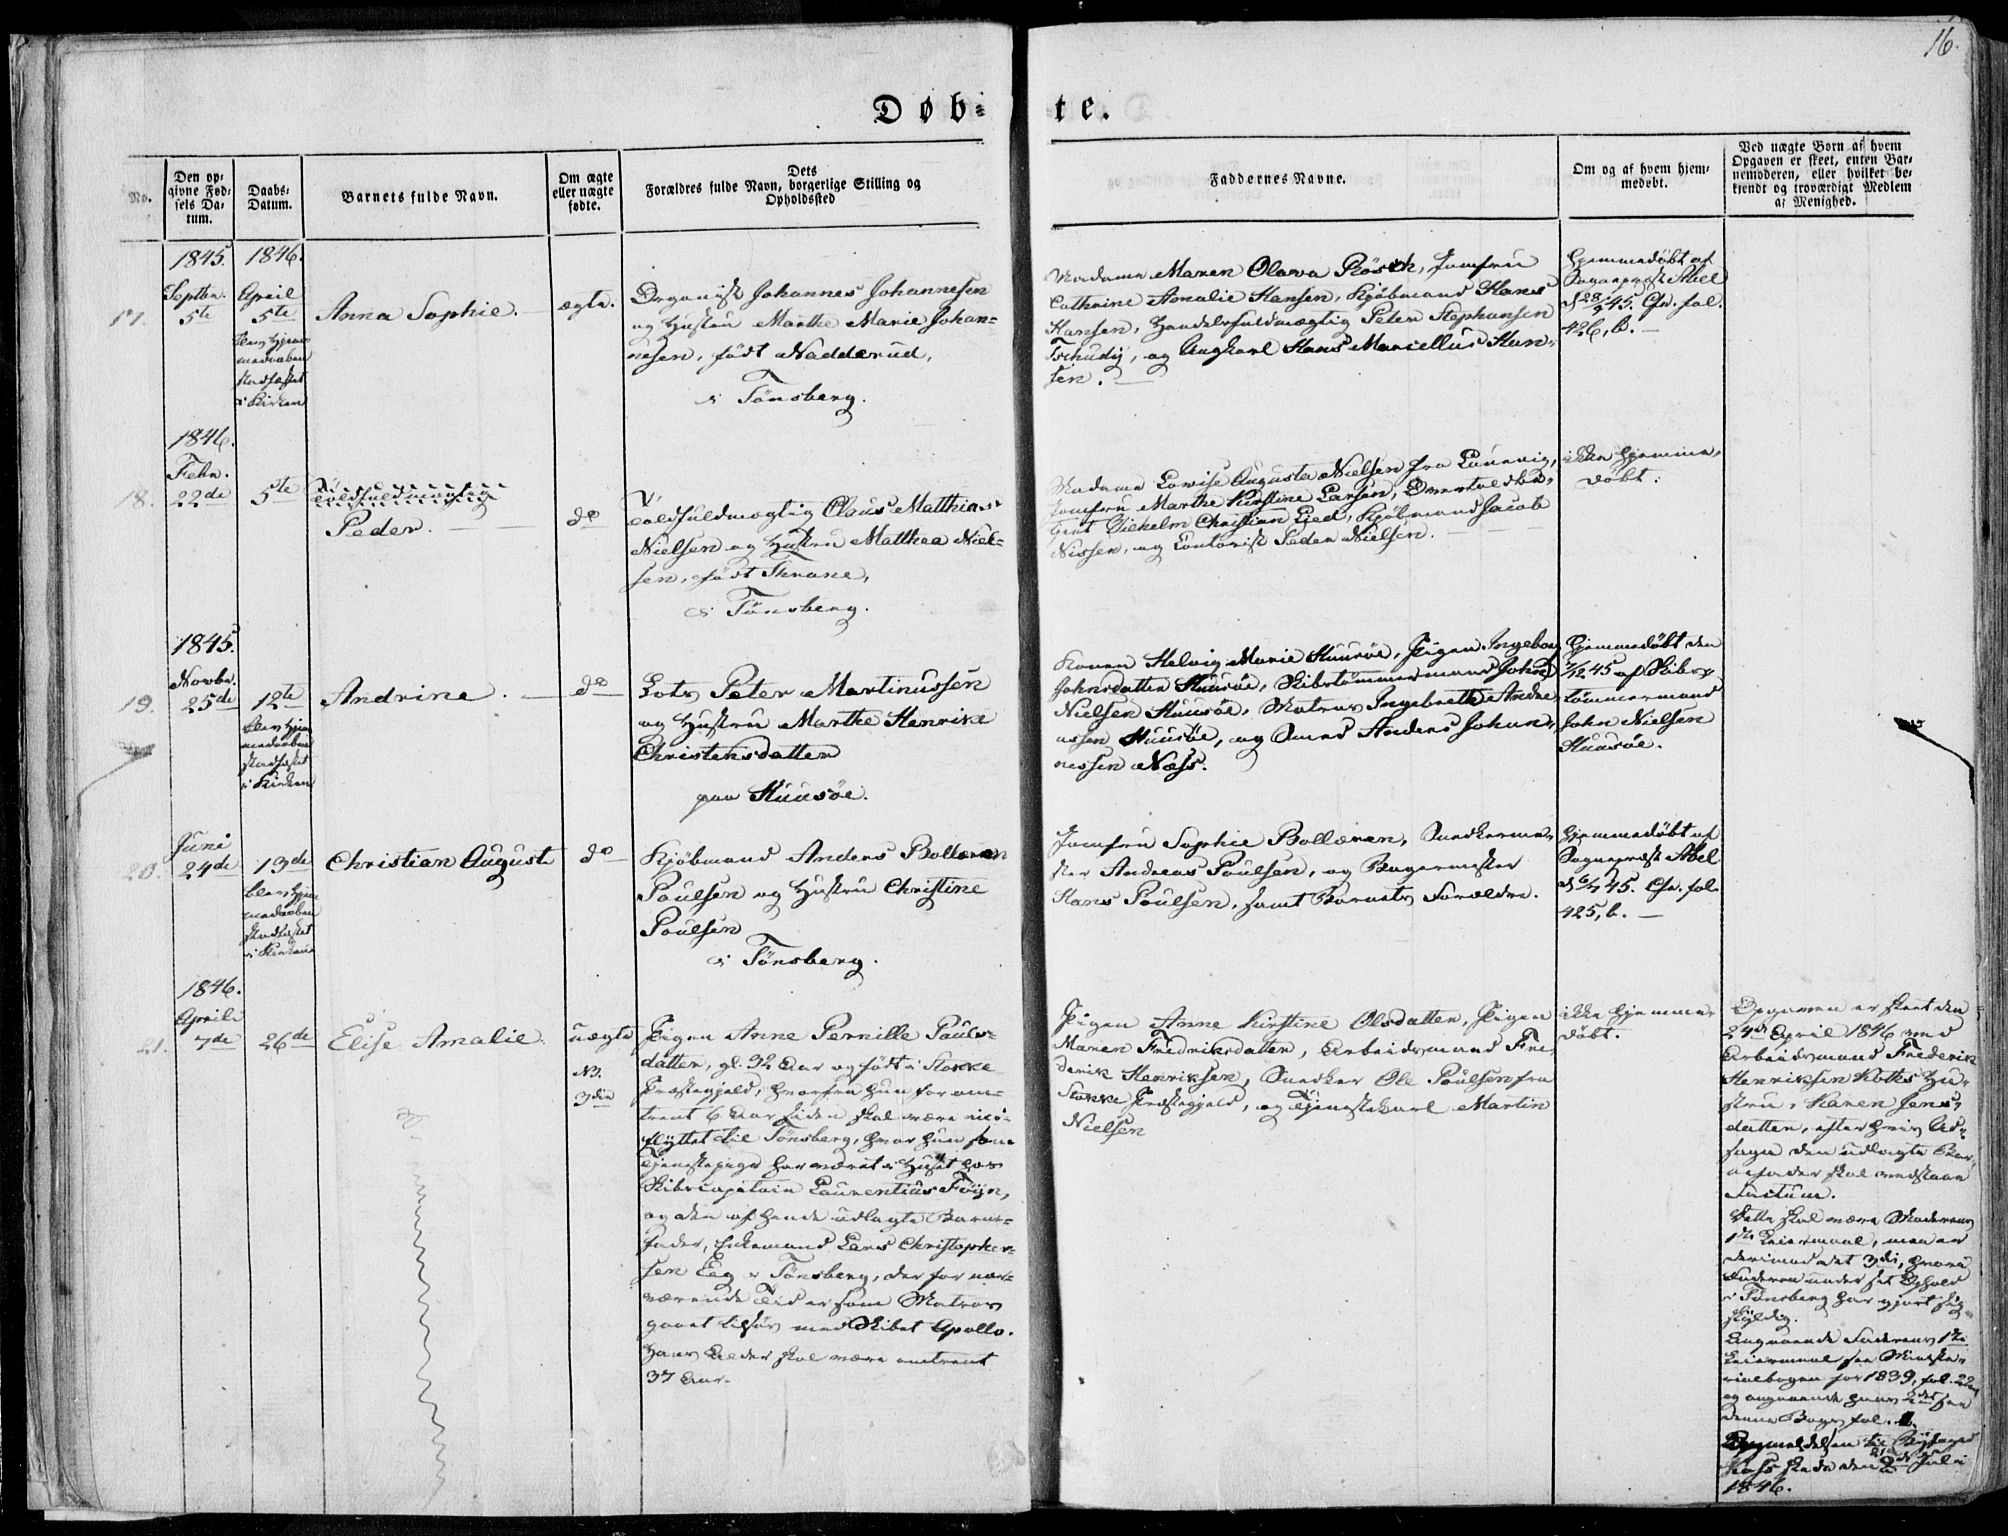 16.
Døb-
te.
No.
Den op-
givne Fød-
sels Da-
tum.
Daabs-
Datum.
Barnets fulde Navn.
Om ægte
eller uægte
fødte.
Dets
Forældres fulde Navn, borgerlige Stilling og
Opholdssted
Faddernes Navne.
Om og af hvem hjem-
medøbt.
Ved uægte Børn af hvem
Opgaven er skeet, enten Bar-
nemoderen, eller hvilket be-
kjendt og troværdigt Medlem
af Menighed.
17.
1845.
Septbr.
5te
1846.
April
5te
blev Hjem-
medaaben
stadfæstet
i Kirken
Anna Sophie.
ægte.
Organist Johannes Johannesen
og Hustru Marthe Marie Johan-
nesen, født Nadderud,
i Tønsberg.
Madame Maren Olava Rösch, Jomfru
Cathrine Amalie Hansen, Kjøbmand Hans
Hansen, Handelsfuldmægtig Peter Stephansen
Tschudy, og Ungkarl Hans Marcellus Han-
sen.
Hjemmedøbt af
Sogneprest Abel
d 28/9 45. Cfr. fol.
426, b.
18.
1846.
Febr.
22de
5te
Toldfuldmægtig
Peder.
do
Toldfuldmægtig Claus Matthias
Nielsen og Hustru Matthea Niel-
sen, født Thrane,
i Tønsberg.
Madame Lovise Augusta Nielsen fra Laurvig,
Jomfru Marthe Kirstine Larsen, Overtoldbe-
tjent Vilhelm Christian Lied, Kjøbmand Jacob
Nissen, og Contorist Peder Nielsen.
ikke hjemme-
døbt.
19.
1845.
Novbr.
25de
12te
blev Hjem-
medaaben
stadfæstet
i Kirken
Andrine.
do
Lots Peter Martinussen
og Hustru Marthe Henrike
Christensdatter
paa Huusøe.
Konen Helvig Marie Huusøe, Pigen Ingeborg
Johnsdatter Huusøe, Skibstømmermand John
Nielsen Huusøe, Matros Ingebreth Andre-
assen Huusøe, og Smed Anders Johan-
nessen Næss.
Hjemmedøbt den
7/12 45 af Skibs-
tømmermand
John Nielsen
Huusøe.
20.
Juni
24de
13de
blev Hjem-
medaaben
stadfæstet
i Kirken
Christian August
do
Kjøbmand Anders Bolleren
Poulsen og Hustru Christine
Poulsen
i Tønsberg.
Jomfru Sophie Bolleren, Snedkerme-
ster Andreas Poulsen, og Bagermester
Hans Poulsen, samt Barnets Forældre.
Hjemmedøbt af
Sogneprest Abel
d 6/7 45. Cfr. fol.
425, b.
21.
1846.
April
7de
26de
Elise Amalie.
uægte
NB.
3die
Pigen Anne Pernille Pouls-
datter, gl. 32 Aar og født i Stokke
Præstegjeld, hvorfra hun for om-
trent 6 Aar siden skal være ind-
flyttet til Tønsberg, hvor hun som
Tjenestepige har været i Huset hos
Skibscapitain Laurentius Føyn,
og den af hende udlagte Barne-
fader, Enkemand Lars Christopher-
sen Eeg i Tønsberg, der for nær-
værende Tid er som Matros
gaaet tilsøes med Skibet Apollo.
Hans Alder skal være omtrent
37 Aar.
Pigen Anne Kirstine Olsdatter, Pigen
Maren Fredriksdatter, Arbeidsmand Fre-
derik Henriksen, Snedker Ole Poulsen fra
Stokke Præstegjeld, og Tjenestekarl Martin
Nielsen
ikke hjemme-
døbt.
Opgaven er skeet den
24de April 1846 ved
Arbeidsmand Frederik
Henriksen Holts Hu-
stru, Karen Jens-
datter, efter hvis Ud-
sagn den udlagte Bar-
nefader skal vedstaae
Factum.
Dette skal være Moderens
1te Leiermaal, men er
derimod det 3die, hvori
Faderen under sit Ophold
i Tønsberg har gjort sig
skyldig.
Angaaende Faderens 1te
Leiermaal see Ministe-
rialbogen for 1839, fol. 22
og angaaende hans 2det see
denne Bogs fol.
Anmeldelsen til Byfoged
skede den 2de Juli
1846.